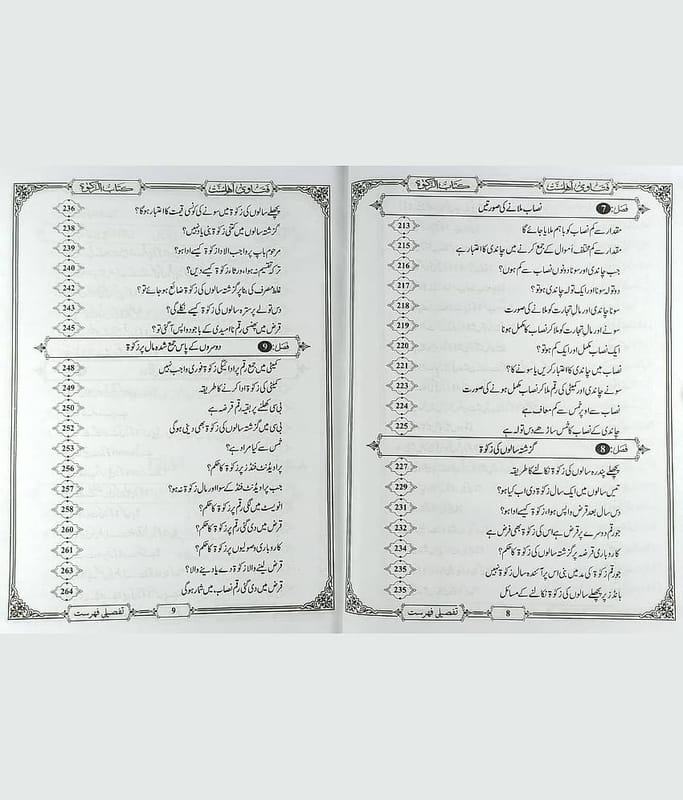 فتاویٰ اہلسنت کتاب الزکوٰۃ
فصل: 7 نصاب ملانے کی صورتیں
مقدار سے کم نصاب کو باہم ملایا جائے گا 213
مقدار سے کم مختلف اموال کے جمع کرنے میں چاندی کا اعتبار ہے 215
جب چاندی اور سونا دونوں نصاب سے کم ہوں؟ 216
دو تولہ سونا اور ایک تولہ چاندی ہو تو؟ 217
سونا چاندی اور مالِ تجارت کو ملانے کی صورت 218
سونے اور مالِ تجارت کو ملا کر نصاب کا مکمل ہونا 219
ایک نصاب مکمل اور ایک کم ہو تو؟ 220
نصاب میں چاندی کا اعتبار کریں یا سونے کا؟ 221
سونے چاندی اور کمیٹی کی رقم ملا کر نصاب مکمل ہونے کی صورت 223
نصاب سے اوپر خُمس سے کم معاف ہے 224
چاندی کے نصاب کا خُمس ساڑھے دس تولہ ہے 225
فصل: 8 گزشتہ سالوں کی زکوٰۃ
پچھلے پندرہ سالوں کی زکوٰۃ نکالنے کا طریقہ 227
تیس سالوں میں ایک سال زکوٰۃ دی اب کیا ہو؟ 229
دس سال بعد قرض واپس ہوا، زکوٰۃ کیسے ادا ہو؟ 231
جو رقم دوسرے پر قرض ہے اس کی زکوٰۃ بھی فرض ہے 232
کاروباری قرضہ پر گزشتہ سالوں کی زکوٰۃ کا حکم؟ 234
جو رقم زکوٰۃ کی مد میں بنی اس پر آئندہ سال زکوٰۃ نہیں 235
بانڈز پر پچھلے سالوں کی زکوٰۃ نکالنے کے مسائل 235
8 تفصیلی فہرست
فتاویٰ اہلسنت کتاب الزکوٰۃ
پچھلے سالوں کی زکوٰۃ میں سونے کی کونسی قیمت کا اعتبار ہوگا؟ 236
گزشتہ سالوں کی زکوٰۃ میں کتنی زکوٰۃ بنی یاد نہیں؟ 238
مرحوم باپ پر واجب الادا زکوٰۃ کیسے ادا ہو؟ 239
ترکہ تقسیم نہ ہوا، ورثاء زکوٰۃ کیسے دیں؟ 240
غلط مصرف کی بنا پر گزشتہ سالوں کی زکوٰۃ ضائع ہو جائے تو؟ 242
دس تولے پر سترہ سالوں کی زکوٰۃ کیسے نکلے گی؟ 243
قرض میں پھنسی رقم نا امیدی کے باوجود واپس آگئی تو؟ 245
فصل: 9 دوسروں کے پاس جمع شدہ مال پر زکوٰۃ
کمیٹی میں جمع رقم پر ادائیگی زکوٰۃ فوری واجب نہیں 248
کمیٹی کی زکوٰۃ ادا کرنے کا طریقہ 249
بی سی کھلنے پر بقیہ رقم قرضہ ہے 250
بی سی میں گزشتہ سالوں کی زکوٰۃ بھی دینی ہوگی 252
خُمس سے کیا مراد ہے؟ 253
پراویڈنٹ فنڈ پر زکوٰۃ کا حکم؟ 256
جب پراویڈنٹ فنڈ کے سوا اور مالِ زکوٰۃ نہ ہو؟ 257
انویسٹ میں لگی رقم پر زکوٰۃ کا حکم؟ 258
قرض میں دی گئی رقم پر زکوٰۃ کا حکم؟ 260
کاروباری وصولیوں پر زکوٰۃ کا حکم؟ 261
قرض لینے والا زکوٰۃ دے یا دینے والا؟ 263
قرض میں دی گئی رقم نصاب میں شمار ہوگی 264
9 تفصیلی فہرست